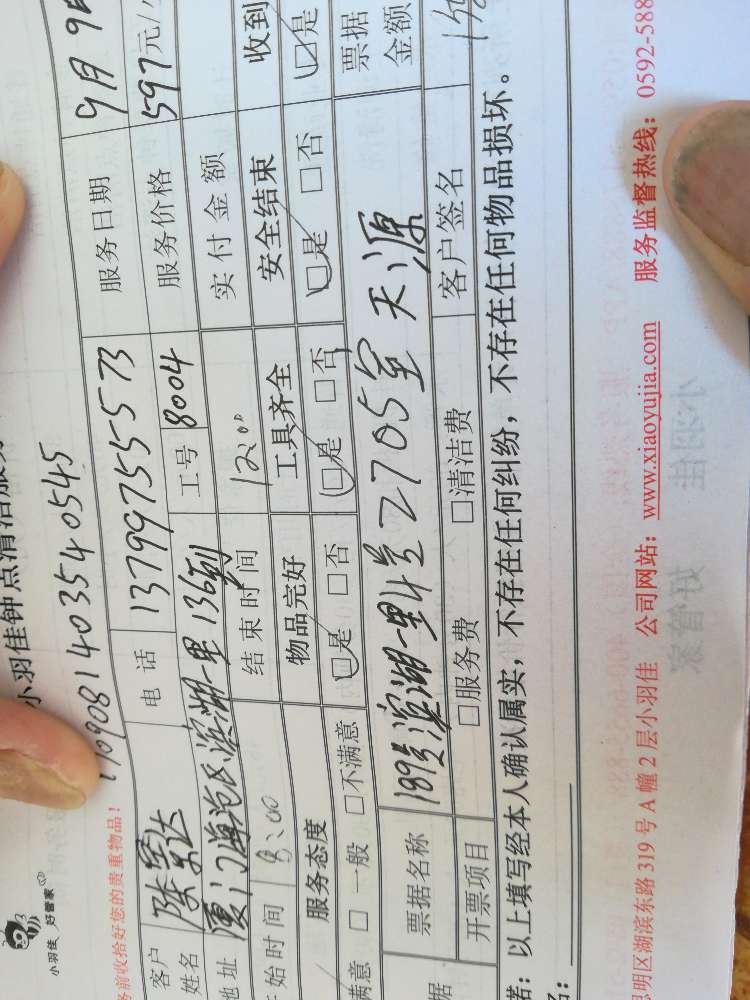 小羽佳 好管家
小羽佳钟点清洁服务
1709081403540545
务前收拾好您的贵重物品!
客户姓名 陈景达 电话 13799755573 服务日期 9月9
地址 厦门海沧区滨湖一里136 工号 8004 服务价格 597元/
始时间 8:00 结束时间 12:00 实付金额
服务态度 物品完好 工具齐全 安全结束 收到
满意 □一般 □不满意 □是 □否 □是 □否 □是 □否 □是
票据名称 189号滨湖一里4号2705室 天源 票据金额
据 开票项目 □服务费 □清洁费 客户签名
诺:以上填写经本人确认属实,不存在任何纠纷,不存在任何物品损坏。
明区湖滨东路 319 号 A 幢 2 层小羽佳 公司网站:www.xiaoyujia.com 服务监督热线:0592-588
小羽佳
好管家